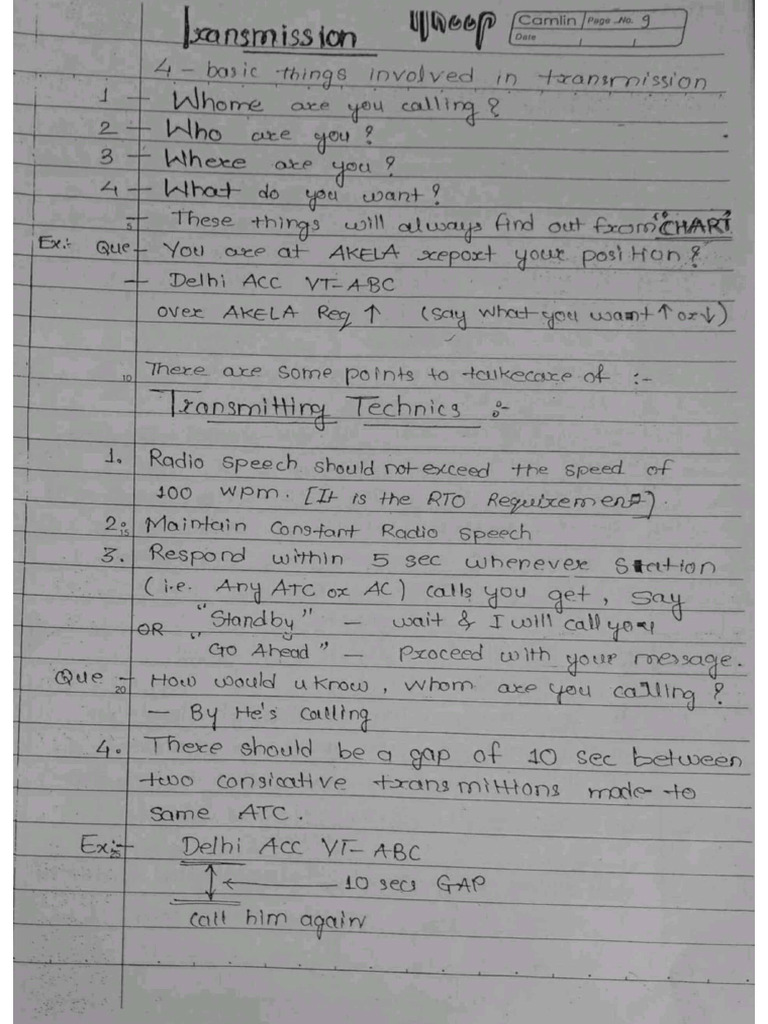 Transmission
Camlin Page No. 9
Date
4 - basic things involved in transmission
1 - Whome are you calling?
2 - Who are you?
3 - Where are you?
4 - What do you want?
5 - These things will always find out from "CHART"
Ex:- Que - You are at AKELA report your position?
- Delhi ACC VT-ABC
over AKELA Req ↑ (say what you want ↑ or ↓)
10 There are some points to takecare of :-
Transmitting Technics :-
1. Radio speech should not exceed the speed of
100 wpm. [It is the RTO Requirement].
2. 15 Maintain constant Radio speech
3. Respond within 5 sec whenever Station
(i.e. Any ATC or AC) calls you get, say
"Standby" - wait & I will call you
OR
"Go Ahead" - Proceed with your message.
Que - How would u know, whom are you calling?
20
- By He's calling
4. There should be a gap of 10 sec between
two consicative transmittions made to
same ATC.
Ex:- 25 Delhi ACC VT-ABC
↕ ← 10 secs GAP
call him again